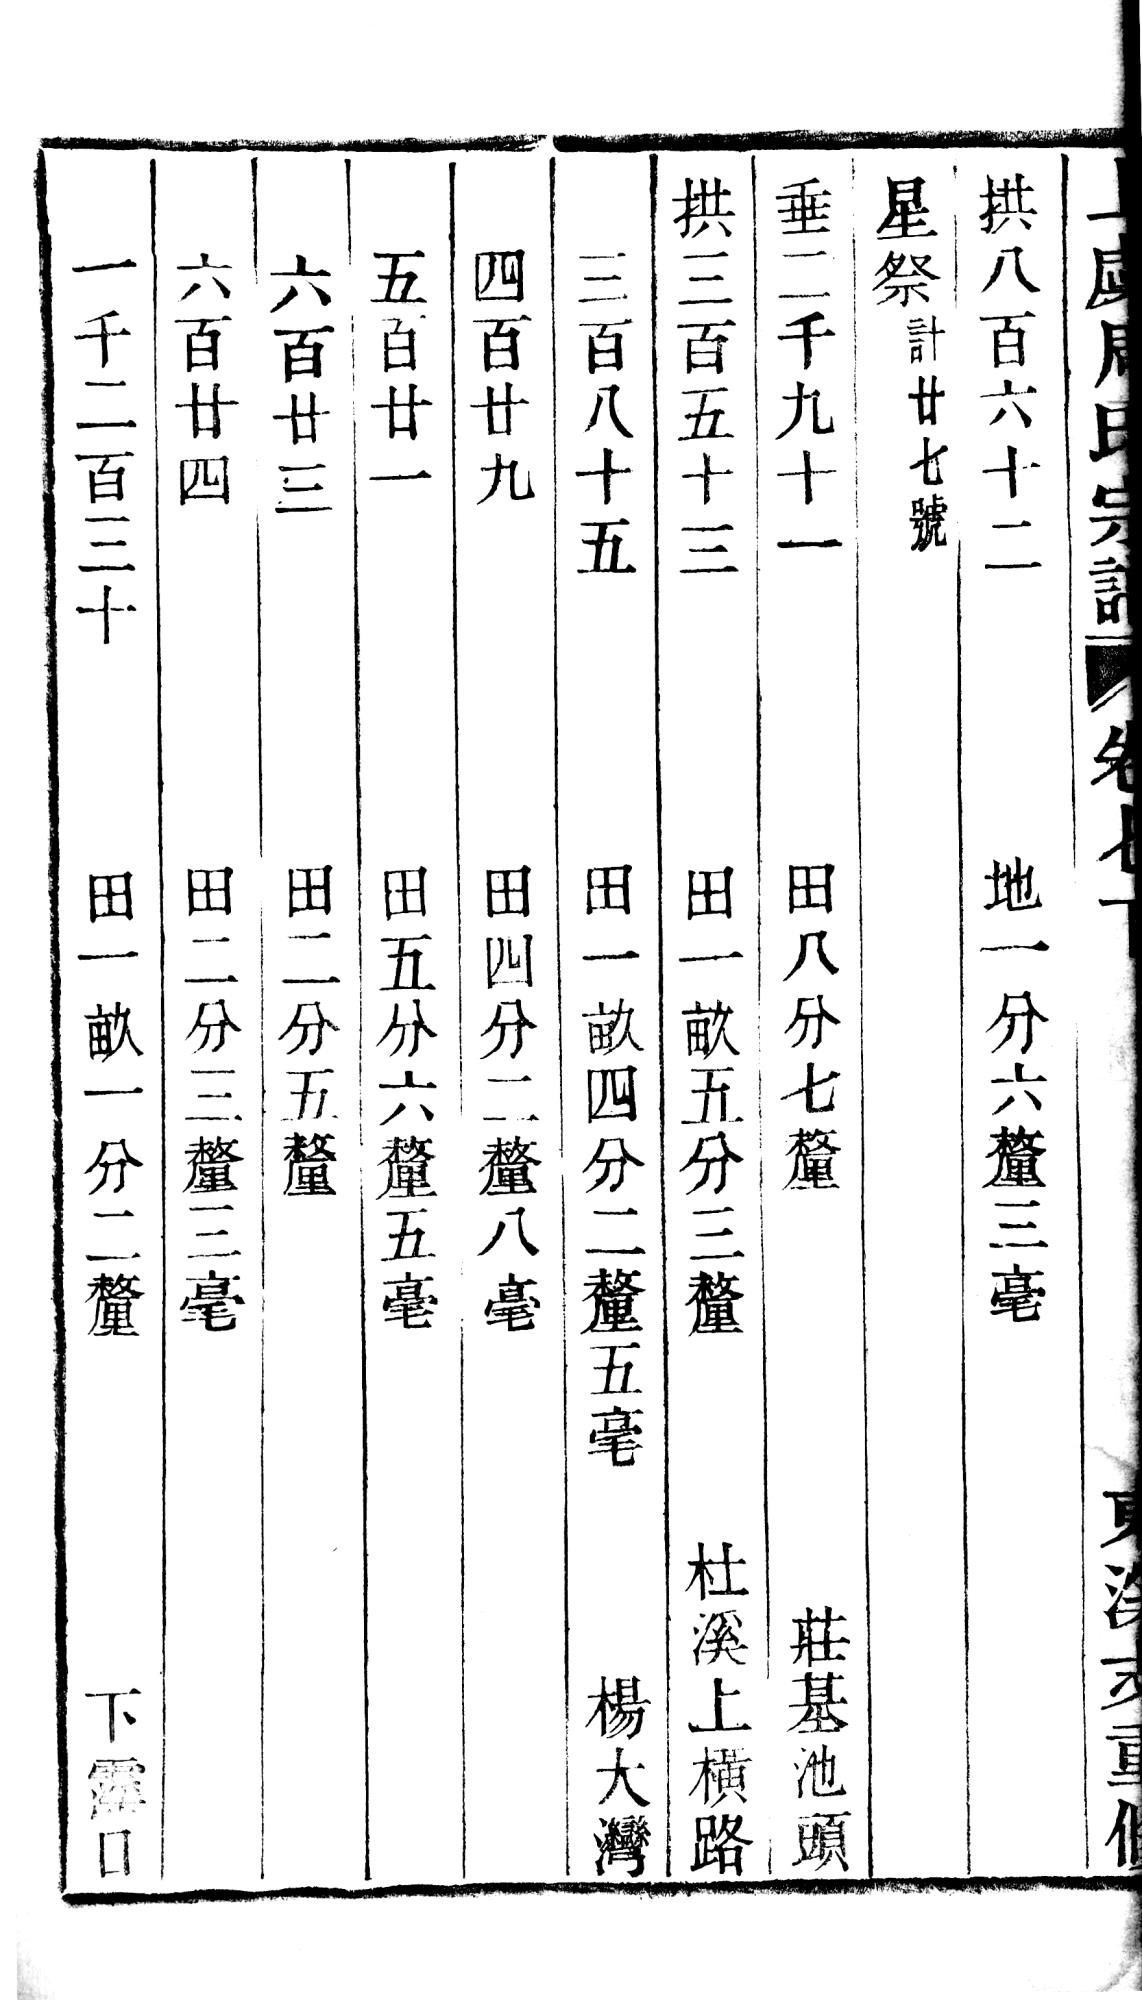 周氏宗譜 卷七十 東溪
拱八百六十二 地一分六釐三毫
星祭計廿七號
垂二千九十一 田八分七釐 莊基池頭
拱三百五十三 田一畝五分三釐 杜溪上橫路
三百八十五 田一畝四分二釐五毫 楊大灣
四百廿九 田四分二釐八毫
五百廿一 田五分六釐五毫
六百廿三 田二分五釐
六百廿四 田二分三釐三毫
一千二百三十 田一畝一分二釐 下口